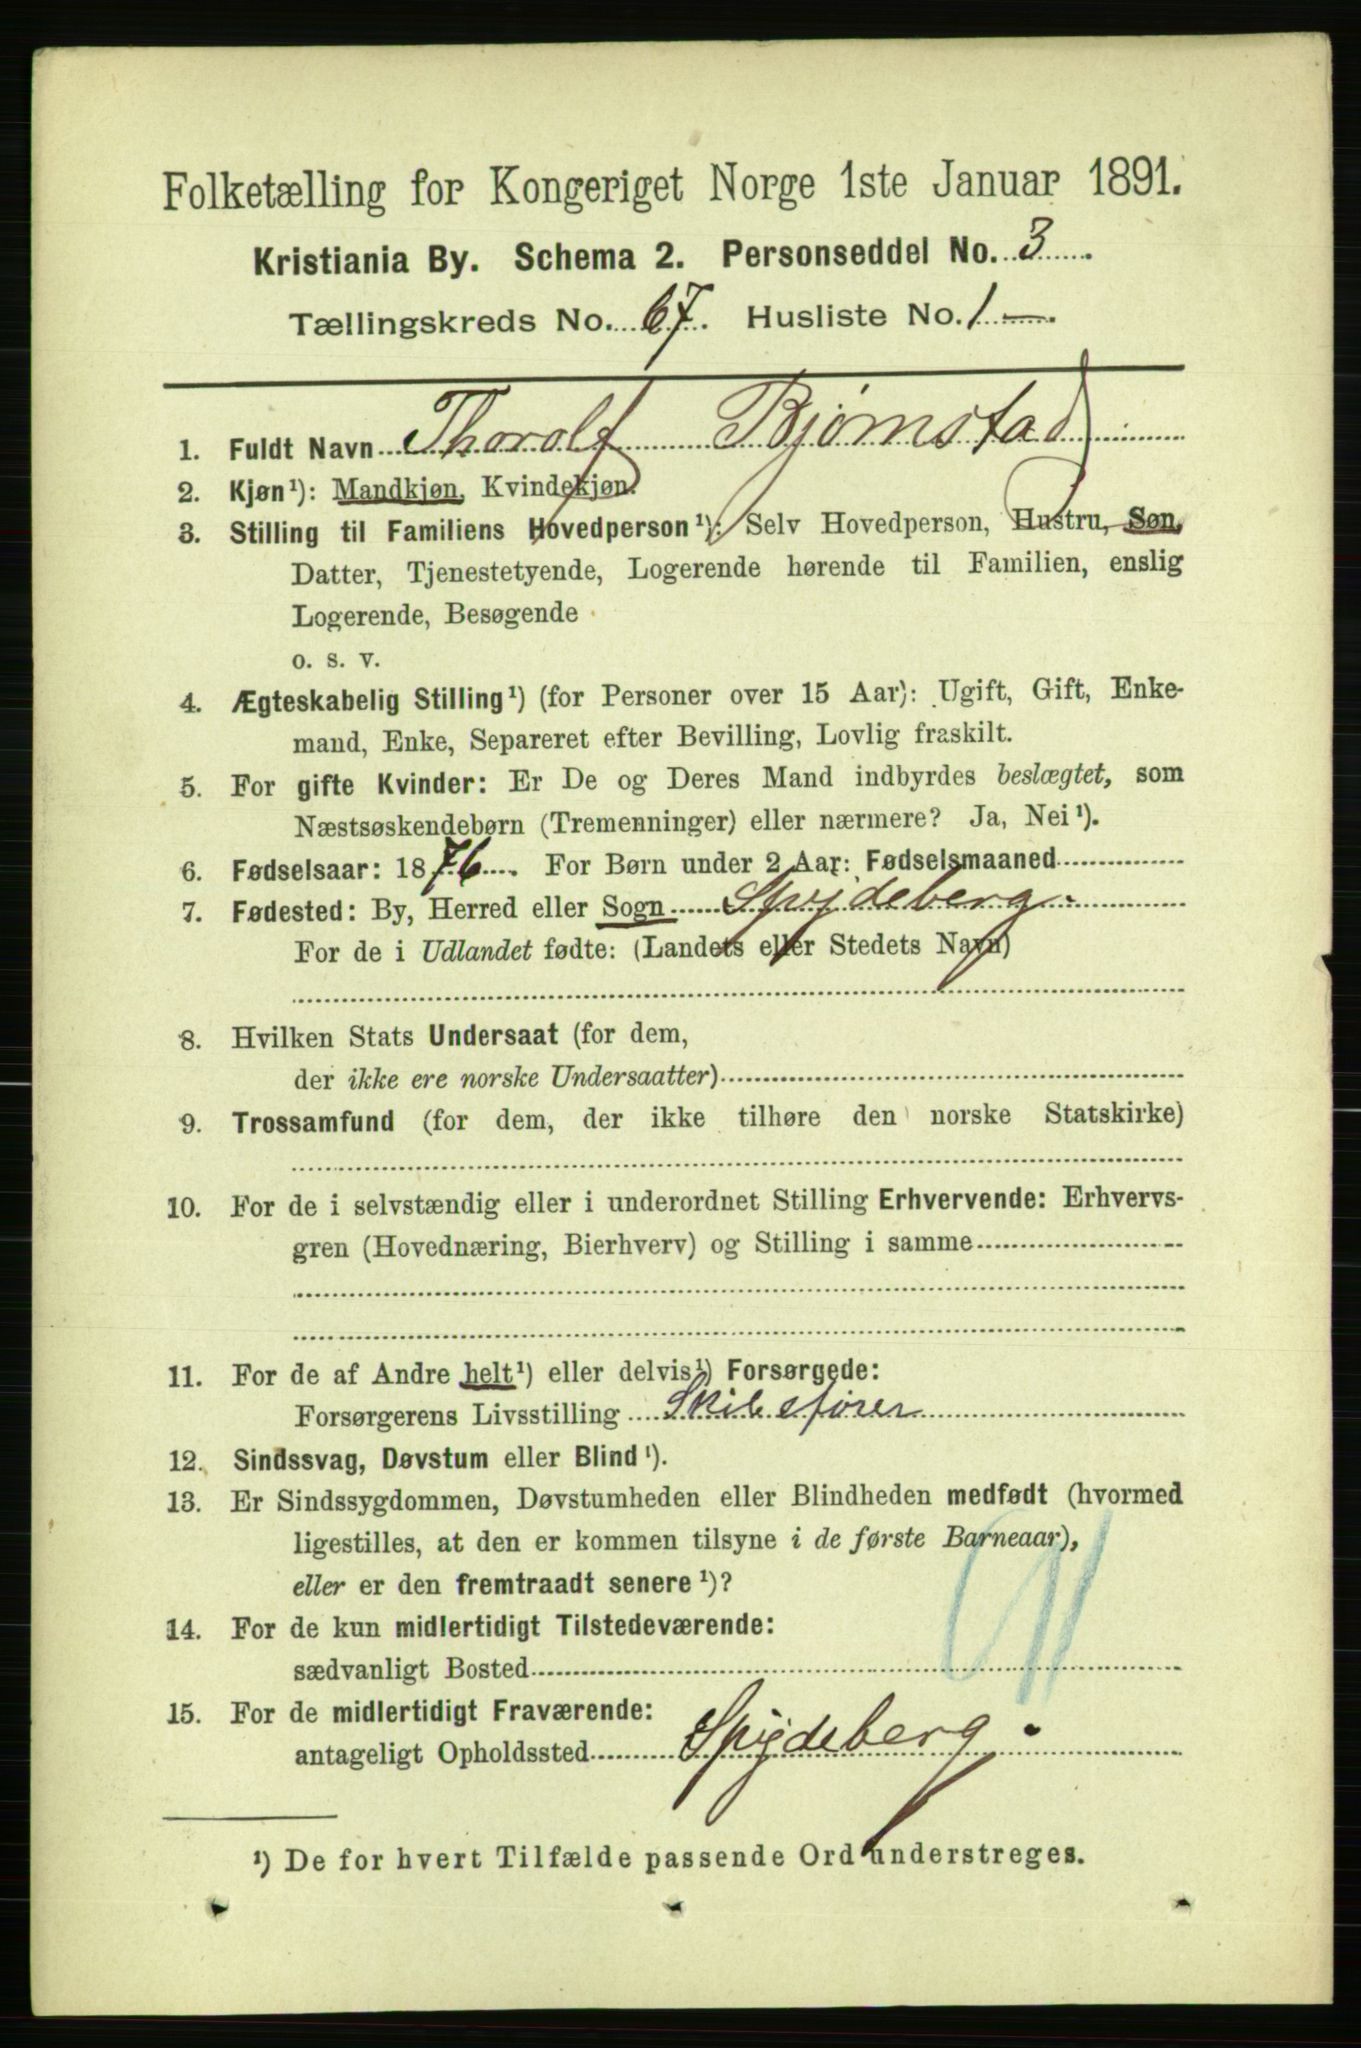 Folketælling for Kongeriget Norge 1ste Januar 1891.
Kristiania By. Schema 2. Personseddel No. 3.
Tællingskreds No. 67. Husliste No. 1 —.
1. Fuldt Navn Thorolf Bjørnstad
2. Kjøn¹): Mandkjøn, Kvindekjøn.
3. Stilling til Familiens Hovedperson¹): Selv Hovedperson, Hustru, Søn,
Datter, Tjenestetyende, Logerende hørende til Familien, enslig
Logerende, Besøgende
o. s. v.
4. Ægteskabelig Stilling¹) (for Personer over 15 Aar): Ugift, Gift, Enke-
mand, Enke, Separeret efter Bevilling, Lovlig fraskilt.
5. For gifte Kvinder: Er De og Deres Mand indbyrdes beslægtet, som
Næstsøskendebørn (Tremenninger) eller nærmere? Ja, Nei¹).
6. Fødselsaar: 1876. For Børn under 2 Aar: Fødselsmaaned
7. Fødested: By, Herred eller Sogn Spydeberg.
For de i Udlandet fødte: (Landets eller Stedets Navn)
8. Hvilken Stats Undersaat (for dem,
der ikke ere norske Undersaatter)
9. Trossamfund (for dem, der ikke tilhøre den norske Statskirke)
10. For de i selvstændig eller i underordnet Stilling Erhvervende: Erhvervs-
gren (Hovednæring, Bierhverv) og Stilling i samme
11. For de af Andre helt¹) eller delvis¹) Forsørgede:
Forsørgerens Livsstilling Skibsfører
12. Sindssvag, Døvstum eller Blind¹).
13. Er Sindssygdommen, Døvstumheden eller Blindheden medfødt (hvormed
ligestilles, at den er kommen tilsyne i de første Barneaar),
eller er den fremtraadt senere¹)?
14. For de kun midlertidigt Tilstedeværende:
sædvanligt Bosted
15. For de midlertidigt Fraværende:
antageligt Opholdssted Spydeberg.
¹) De for hvert Tilfælde passende Ord understreges.